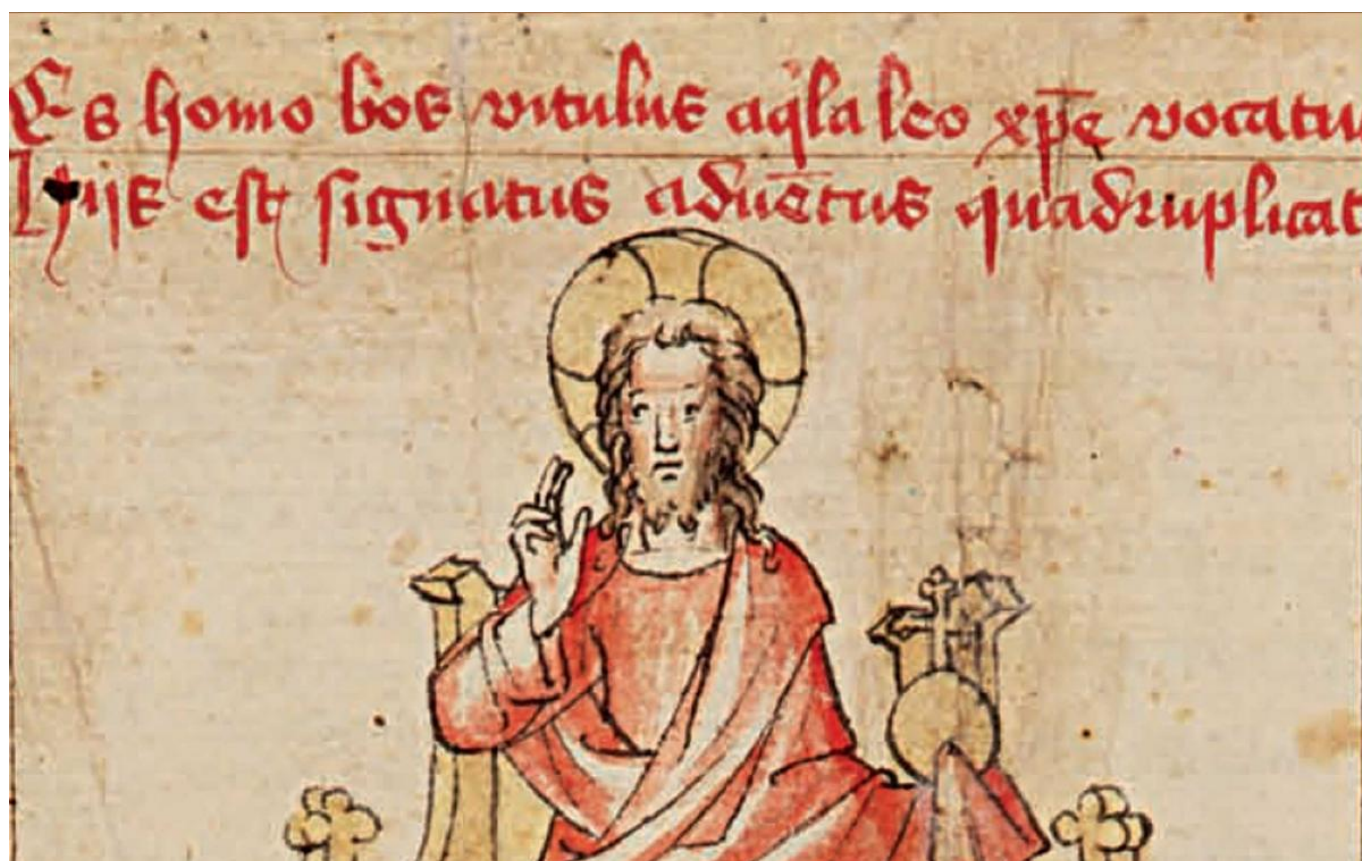 Es homo bos vitulus aq̓la leo xp̄e vocatu
Hijs est signatus aduētus quadruplicat